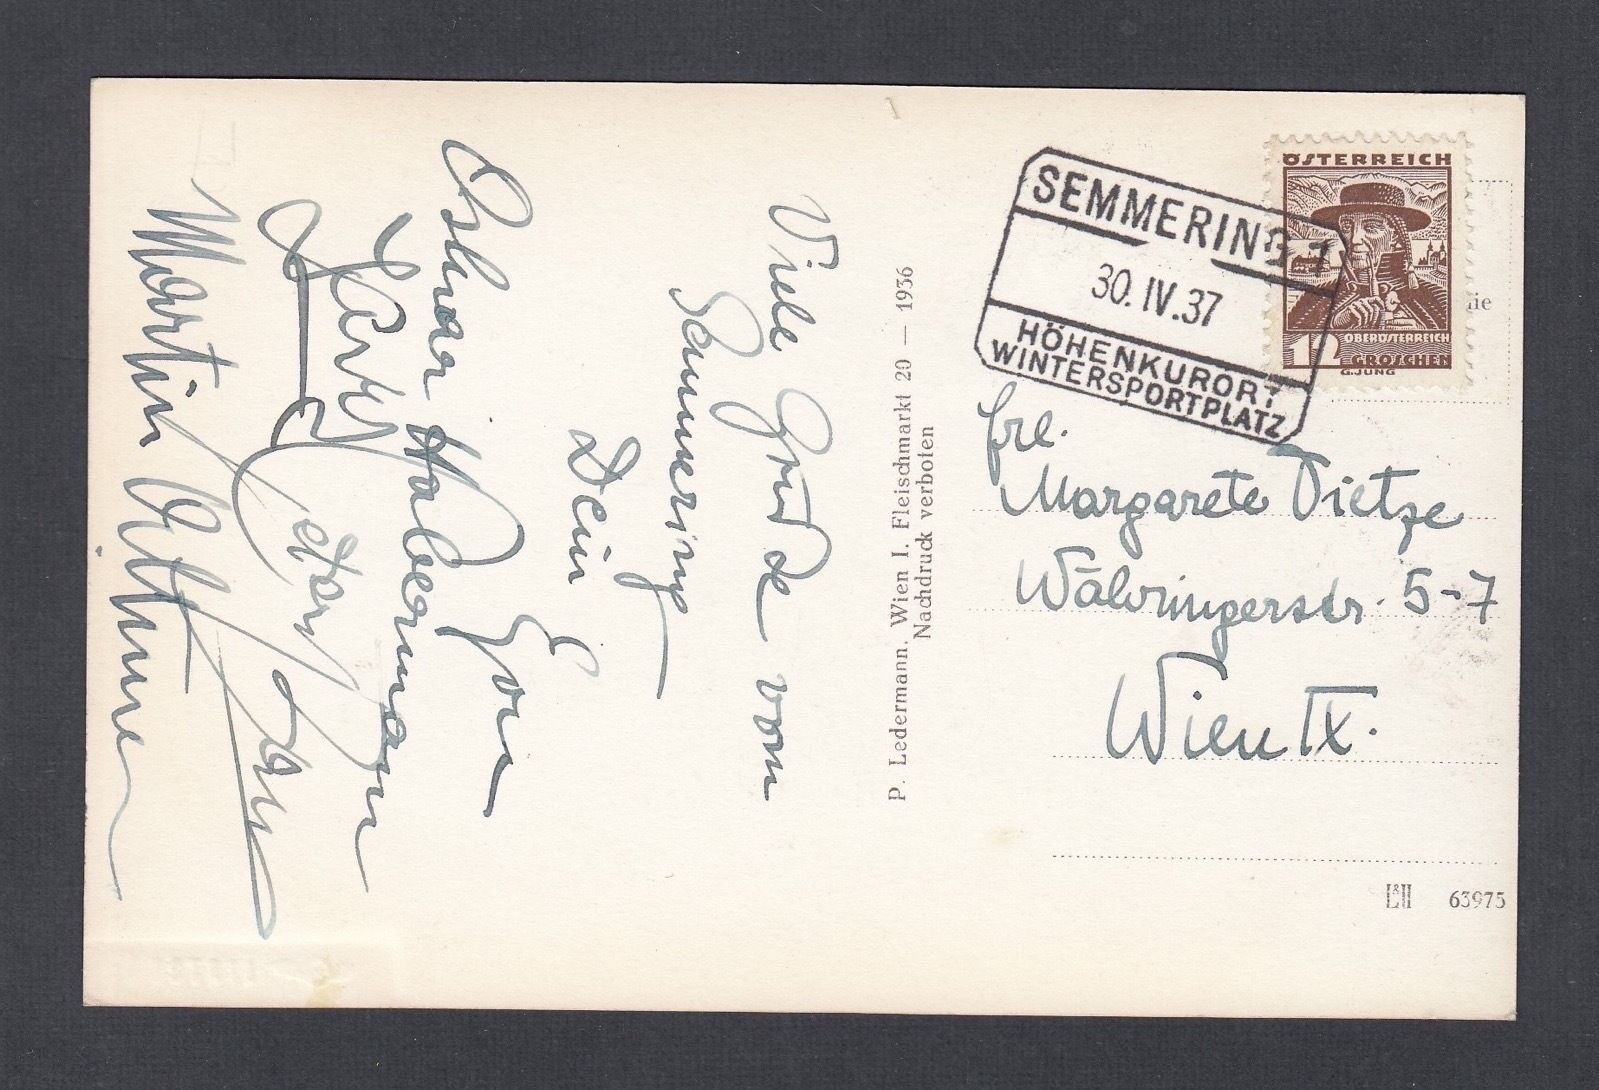 Viele Grüße vom
Semmering
Dein
Haberman
Martin
P. Ledermann, Wien I. Fleischmarkt 20 — 1936
Nachdruck verboten
SEMMERING 1
30. IV. 37
HÖHENKURORT
WINTERSPORTPLATZ
ÖSTERREICH
12
OBERÖSTERREICH
GROSCHEN
G.JUNG
frl.
Margarete Dietze
Währingerstr. 5-7
Wien IX.
L&H 63975